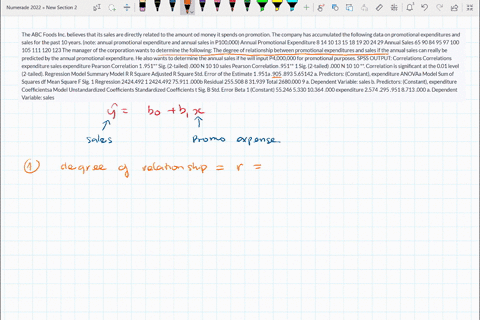 Numemade 2022 > New Section 2
The ABC Foods Inc. believes that its sales are directly related to the amount od money it spends on promotion. The company has accumulated the following data on promotional expenditures and
sales for the past 10 years. (note: annual promotional expenditure and annual sales in P100,000) Annual Promotional Expenditure 8 14 10 13 15 18 19 20 24 29 Annual Sales 65 90 84 95 97 100
105 111 120 123 The manager of the corporation wants to determine the following: The degree of relationship between promotional expenditures and sales if the annual sales can really be
predicted by the annual promotional expenditure. He also wants to determine the annual sales if he will input P4,000,000 for promotional purposes. SPSS OUTPUT: Correlations Correlations
expenditure sales expenditure Pearson Correlation 1 .951** Sig. (2-tailed) .000 N 10 10 sales Pearson Correlation .951** 1 Sig. (2-tailed) .000 N 10 10 **. Correlation is significant at the 0.01 level
(2-tailed). Regression Model Summary Model R R Square Adjusted R Square Std. Error of the Estimate 1 .951a .905 .893 5.65142 a. Predictors: (Constant), expenditure ANOVAa Model Sum of
Squares df Mean Square F Sig. 1 Regression 2424.492 1 2424.492 75.911 .000b Residual 255.508 8 31.939 Total 2680.000 9 a. Dependent Variable: sales b. Predictors: (Constant), expenditure
Coefficientsa Model Unstandardized Coefficients Standardized Coefficients t Sig. B Std. Error Beta 1 (Constant) 55.246 5.330 10.364 .000 expenditure 2.574 .295 .951 8.713 .000 a. Dependent
Variable: sales
ŷ = b₀ + b₁ x
sales promo expense
① degree of relationship = r =